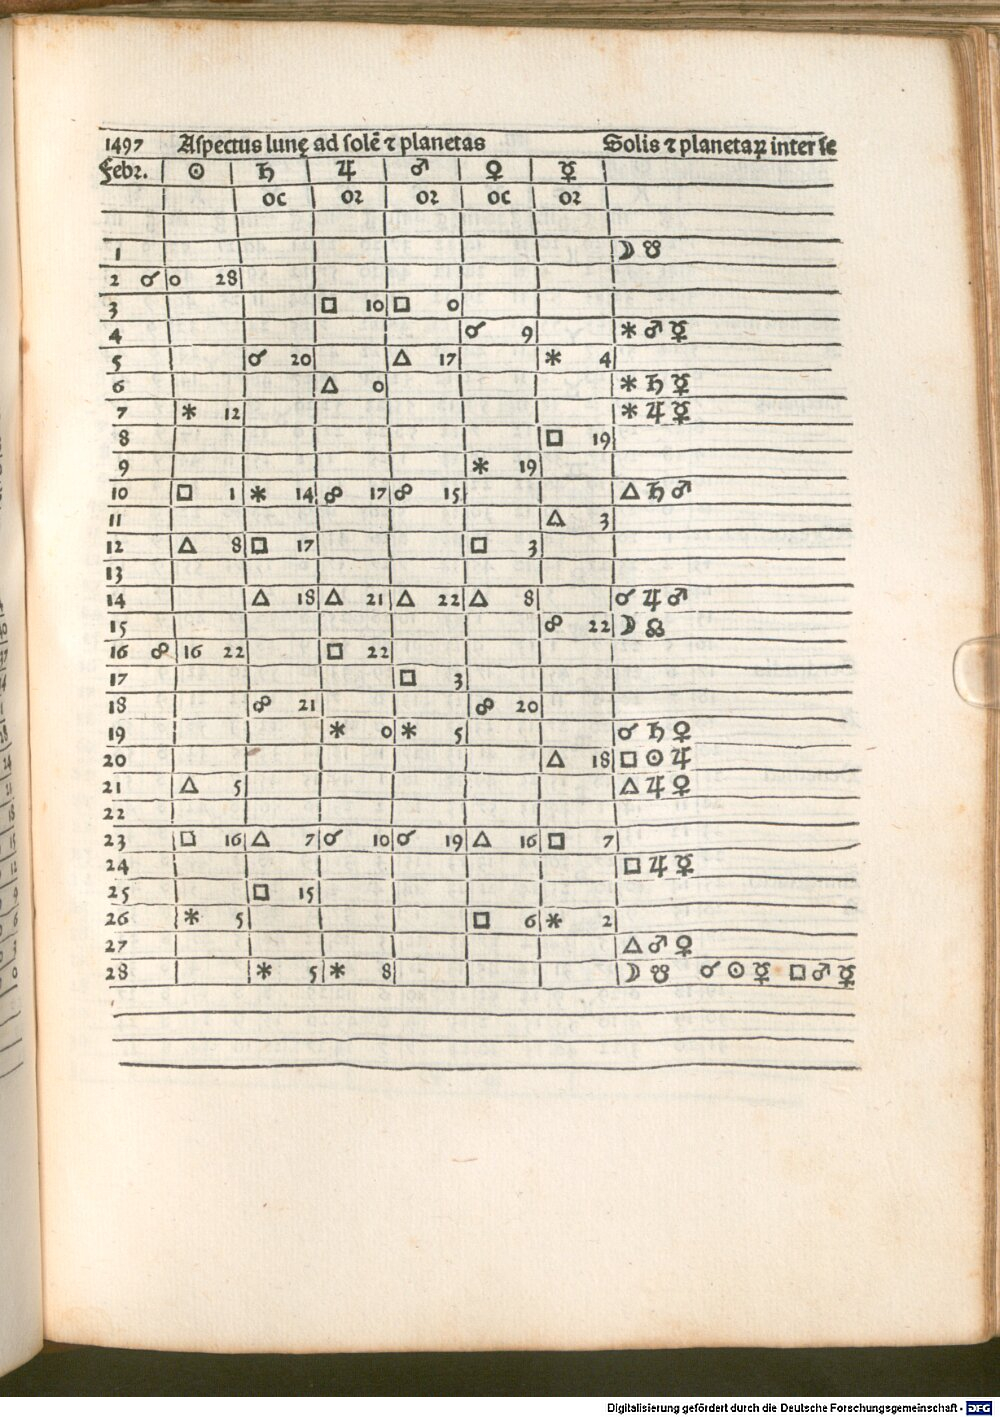 1497 Aſpectus lunę ad ſolē ⁊ planetas Solis ⁊ planetaꝝ inter ſe
Febr. ☉ ♄ ♃ ♂ ♀ ☿
oc oꝛ oꝛ oc oꝛ
1 ☽ ☋
2 ☌ 0 28
3 □ 10 □ 0
4 ☌ 9 ⚹ ♂ ☿
5 ☌ 20 △ 17 ⚹ 4
6 △ 0 ⚹ ♄ ☿
7 ⚹ 12 ⚹ ♃ ☿
8 □ 19
9 ⚹ 19
10 □ 1 ⚹ 14 ☍ 17 ☍ 15 △ ♄ ♂
11 △ 3
12 △ 8 □ 17 □ 3
13
14 △ 18 △ 21 △ 22 △ 8 ☌ ♃ ♂
15 ☍ 22 ☽ ☊
16 ☍ 16 22 □ 22
17 □ 3
18 ☍ 21 ☍ 20
19 ⚹ 0 ⚹ 5 ☌ ♄ ♀
20 △ 18 □ ☉ ♃
21 △ 5 △ ♃ ♀
22
23 □ 16 △ 7 ☌ 10 ☌ 19 △ 16 □ 7
24 □ ♃ ☿
25 □ 15
26 ⚹ 5 □ 6 ⚹ 2
27 △ ♂ ♀
28 ⚹ 5 ⚹ 8 ☽ ☋ ☌ ☉ ☿ □ ♂ ☿
Digitalisierung gefördert durch die Deutsche Forschungsgemeinschaft - DFG